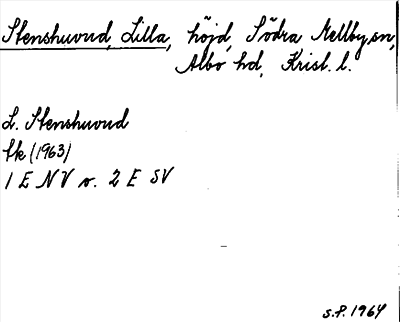 Stenshuvud, Lilla, höjd, Södra Mellby sn,
Albo hd, Krist. l.
L. Stenshuvud
Ek (1963)
1 E NV o. 2 E SV
S.P. 1964